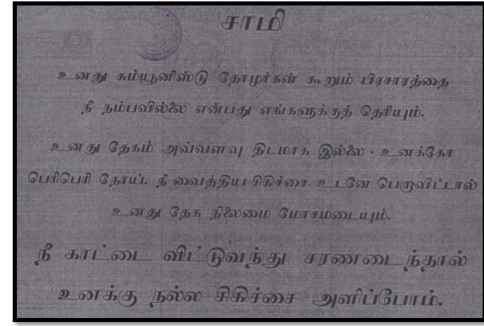 சாமி
உனது கம்யூனிஸ்டு தோழர்கள் கூறும் பிரசாரத்தை
நீ நம்பவில்லை என்பது எங்களுக்குத் தெரியும்.
உனது தேகம் அவ்வளவு திடமாக இல்லை - உனக்கோ
பெரிபெரி நோய். நீ வைத்திய சிகிச்சை உடனே பெறாவிட்டால்
உனது தேக நிலைமை மோசமடையும்.
நீ காட்டை விட்டுவந்து சரணடைந்தால்
உனக்கு நல்ல சிகிச்சை அளிப்போம்.